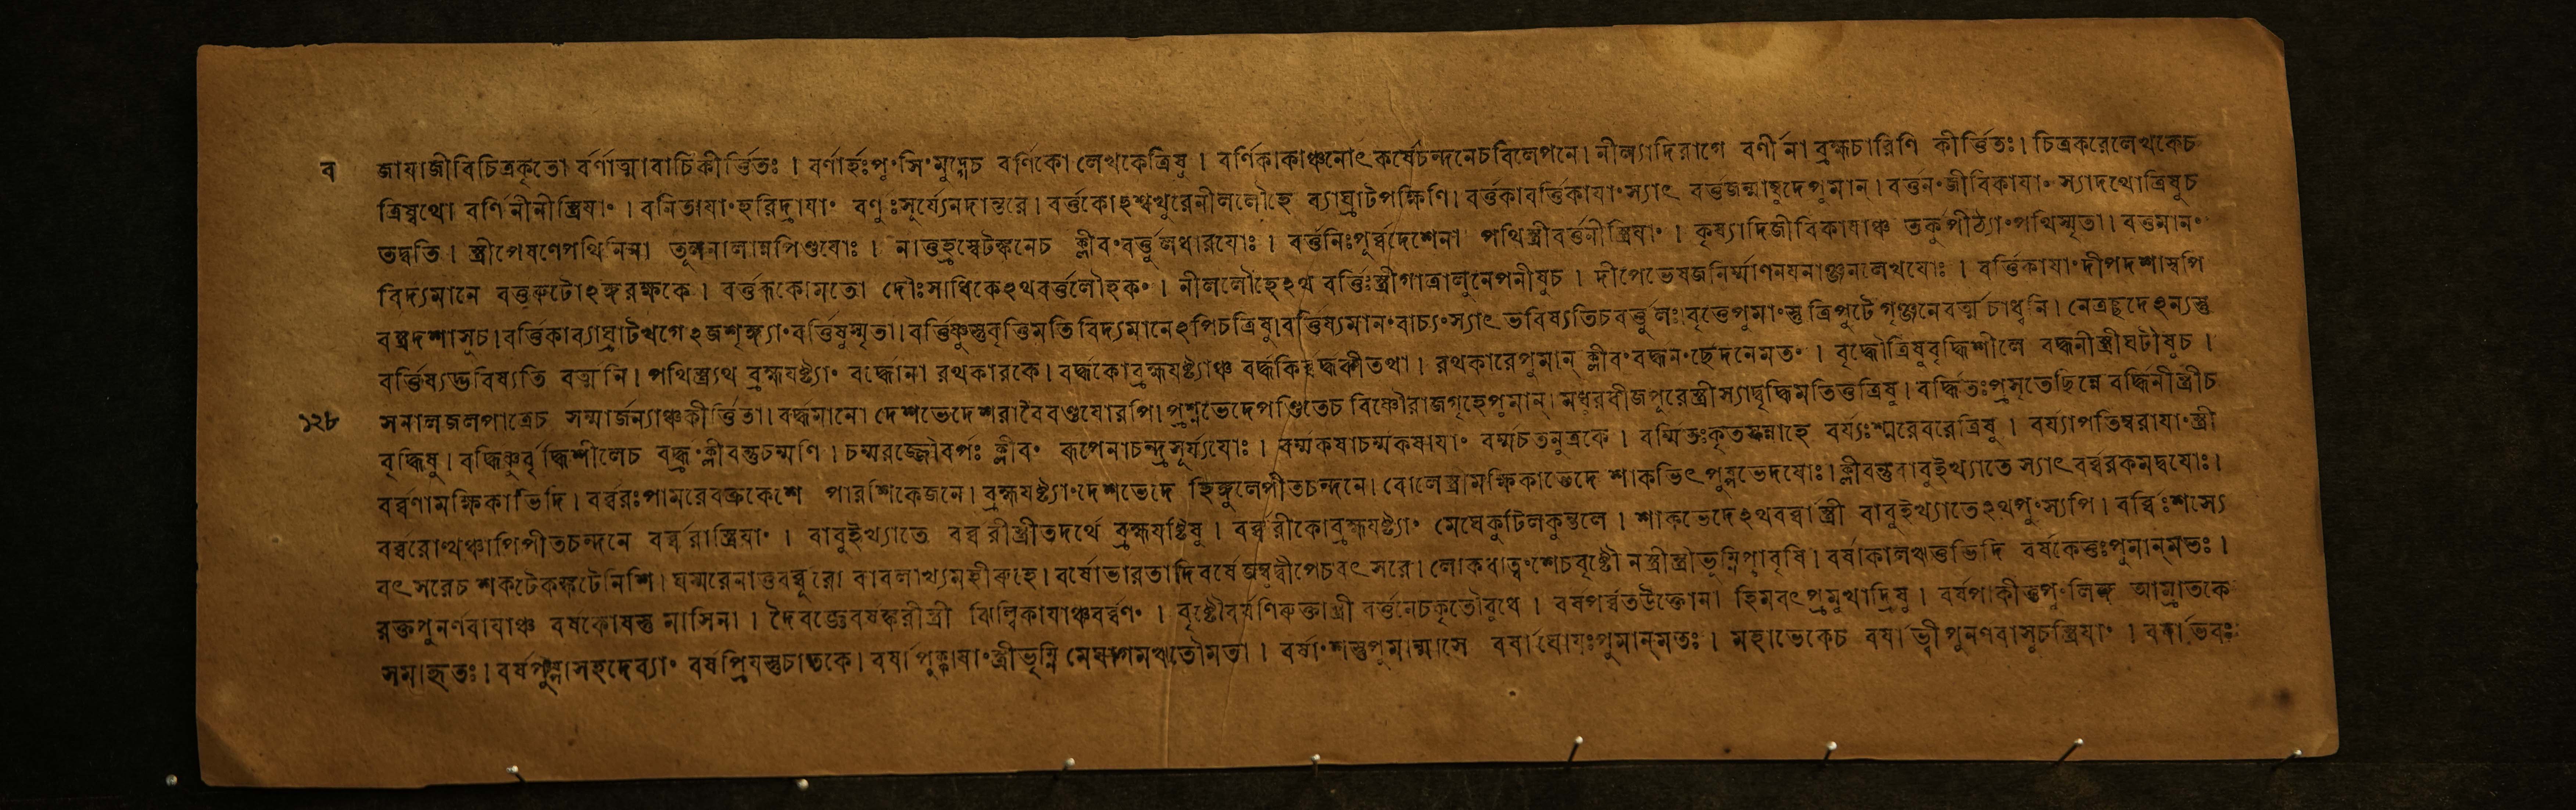 ব জাযাজীবিচিত্রকৃতো বর্ণাত্মাবাচিকীর্ত্তিতঃ । বর্ণার্হঃপুংসিংমুদ্গেচ বর্ণিকো লেখকেত্রিষু । বর্ণিকাকাঞ্চনোৎকর্ষেচন্দনেচবিলেপনে। নীল্যাদিরাগে বর্ণীনা ব্রহ্মচারিণি কীর্ত্তিতঃ। চিত্রকরেলেখকেচ
ত্রিষ্বথো বর্ণিনীনীস্ত্রিযাং । বনিতাযাংহরিদ্রাযাং বর্ণুঃসূর্য্যেনদান্তরে। বর্ত্তকোঽশ্বখুরেনীললৌহে ব্যাঘ্রাটপক্ষিণি। বর্ত্তকাবর্ত্তিকাযাংস্যাৎ বর্ত্তজন্মাম্বুদেপুমান্। বর্ত্তনংজীবিকাযাং স্যাদথোত্রিষুচ
তদ্বতি । স্ত্রীপেষণেপথিনিম্না তূলনালাম্নপিণ্ডযোঃ । নাত্তুহ্রস্বেটঙ্কনেচ ক্লীবংবর্ত্তুলধারযোঃ । বর্ত্তনিঃপূর্ব্বদেশেনা পথিস্ত্রীবর্ত্তনীস্ত্রিযাং । কৃষ্যাদিজীবিকাযাঞ্চ তর্কুপীঠ্যাংপথিস্মৃতা। বর্ত্তমানং
বিদ্যমানে বর্ত্তরুটোঽঙ্গরক্ষকে । বর্ত্তরূকোমতো দৌঃসাধিকেঽথবর্ত্তলৌহকং । নীললৌহেঽথ বর্ত্তিঃস্ত্রীগাত্রালুনেপনীষুচ । দীপেভেষজনির্ম্মাণনযনাঞ্জনলেখযোঃ । বর্ত্তিকাযাংদীপদশাস্বপি
বস্ত্রদশাসুচ। বর্ত্তিকাব্যাঘ্রাটখগেঽজশৃঙ্গ্যাংবর্ত্তিষুস্মৃতা। বর্ত্তিষ্ণুস্তুবৃত্তিমতি বিদ্যমানেঽপিচত্রিষু। বর্ত্তিষ্যমানংবাচ্যংস্যাৎ ভবিষ্যতিচবর্ত্তুলঃ। বৃত্তেপুমাংস্তু ত্রিপুটে গৃঞ্জনেবর্ত্মচাধ্বনি। নেত্রছদেঽন্যস্তু
বর্ত্তিষ্যদ্ভবিষ্যতি বর্ত্মনি। পথিস্ত্র্যথ ব্রহ্মযষ্ট্যাং বর্দ্ধোনা রথকারকে। বর্দ্ধকোব্রহ্মযষ্ট্যাঞ্চ বর্দ্ধকিবর্দ্ধকীতথা। রথকারেপুমান্ ক্লীবংবর্দ্ধনংছেদনেমতং । বৃদ্ধৌত্রিষুবৃদ্ধিশীলে বর্দ্ধনীস্ত্রীঘটীষুচ ।
১২৮ সনালজলপাত্রেচ সম্মার্জন্যাঞ্চকীর্ত্তিতা। বর্দ্ধমানো দেশভেদেশরাবৈবণ্ডযোরপি। প্রশ্নভেদেপণ্ডিতেচ বিষ্ণৌরাজগৃহেপুমান্। মধুরবীজপূরেস্ত্রীস্যাদ্বৃদ্ধিমতিত্তত্রিষু। বর্দ্ধিতঃপ্রসৃতেছিন্নে বর্দ্ধিনীস্ত্রীচ
বৃদ্ধিষু। বর্দ্ধিষ্ণুর্বৃদ্ধিশীলেচ বর্দ্ধ্রংক্লীবন্তুচর্ম্মণি । চর্ম্মরজ্জৌবর্পঃ ক্লীবং রূপেনাচন্দ্রসূর্য্যযোঃ । বর্ম্মকষাচর্ম্মকষাযাং বর্ম্মচতনুত্রকে । বর্ম্মিতঃকৃতসন্নাহে বর্য্যঃস্মরেবরেত্রিষু । বর্য্যাপতিম্বরাযাংস্ত্রী
বর্ব্বণামক্ষিকাভিদি। বর্ব্বরঃপামরেবক্রকেশে পারশিকেজনে। ব্রহ্মযষ্ট্যাংদেশভেদে হিঙ্গুলেপীতচন্দনে। বোলেস্ত্রামক্ষিকাভেদে শাকভিৎপুষ্পভেদযোঃ। ক্লীবন্তুবাবুইখ্যাতে স্যাৎবর্ব্বরকমদ্বযোঃ।
বর্ব্বরোত্থঞ্চাপিপীতচন্দনে বর্ব্বরাস্ত্রিযাং । বাবুইখ্যাতে বর্ব্বরীস্ত্রীতদর্থে ব্রহ্মযষ্টিষু । বর্ব্বরীকোব্রহ্মযষ্ট্যাং মেঘেকুটিলকুন্তলে । শাকভেদেঽথবর্ব্বাস্ত্রী বাবুইখ্যাতেঽথপুংস্যপি। বর্ব্বিঃশস্যে
বৎসরেচ শকটেকঙ্কটেনিশি। ঘস্মরেনাত্তবর্ব্বূরো বাবলাখ্যমহীরুহে। বর্ষোভারতাদিবর্ষে জম্বুদ্বীপেচবৎসরে। লোকধাত্ত্বংশেচবৃষ্টৌ নস্ত্রীস্ত্রীভূম্নিপ্রাবৃষি। বর্ষাকালঋতুভিদি বর্ষকেত্তঃপুমান্মতঃ ।
রক্তপুনর্ণবাযাঞ্চ বর্ষকোষস্তু মাসিনা । দৈবজ্ঞেবর্ষঙ্করীস্ত্রী ঝিল্লিকাযাঞ্চবর্ষণং । বৃষ্টৌবর্ষণিরুক্তাস্ত্রী বর্ত্তনেচকৃতৌবুধে । বর্ষপর্ব্বতউক্তোনা হিমবৎপ্রমুখাদ্রিষু । বর্ষপাকীত্তপুংলিঙ্গ আম্রাতকে
সমাহৃতঃ। বর্ষপুষ্পাসহদেব্যাং বর্ষপ্রিযস্তুচাতকে। বর্ষাপুংস্ত্রীভূম্নি মেঘাগমঋতৌমতা । বর্ষাংশস্তুপুমান্মাসে বর্ষাঘোষঃপুমান্মতঃ । মহাভেকেচ বর্ষাভ্বীপুনর্ণবাসুচস্ত্রিযাং । বর্ষাভবঃ